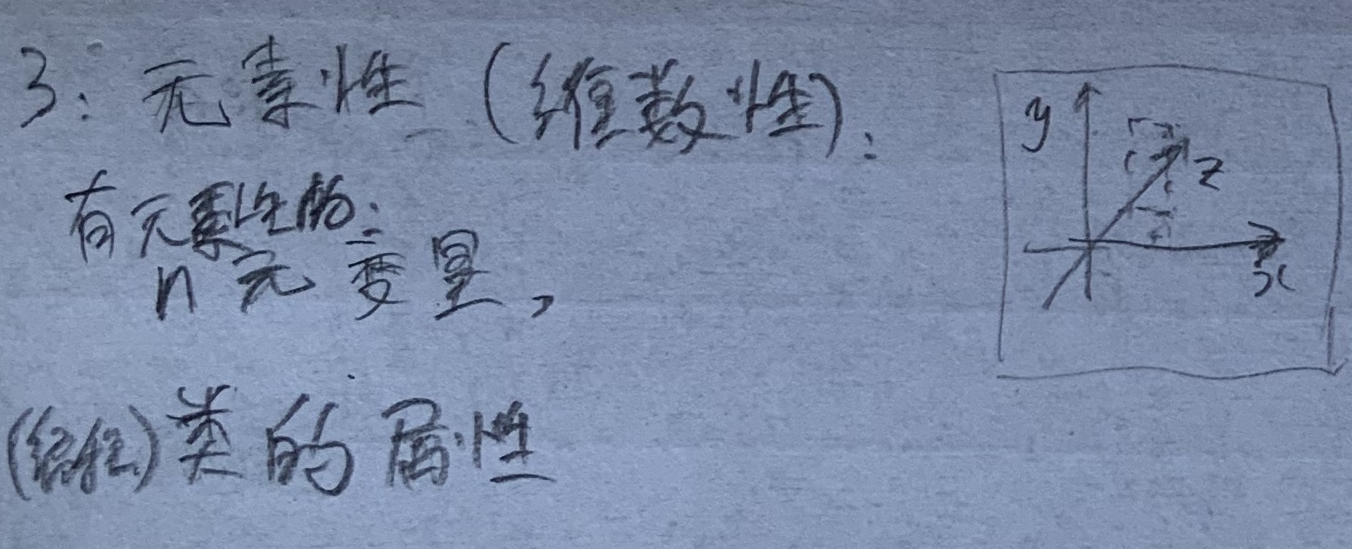 3: 元素性 (维数性):
有元素性的:
n 元变量,
(编程)类的属性
y
z
x